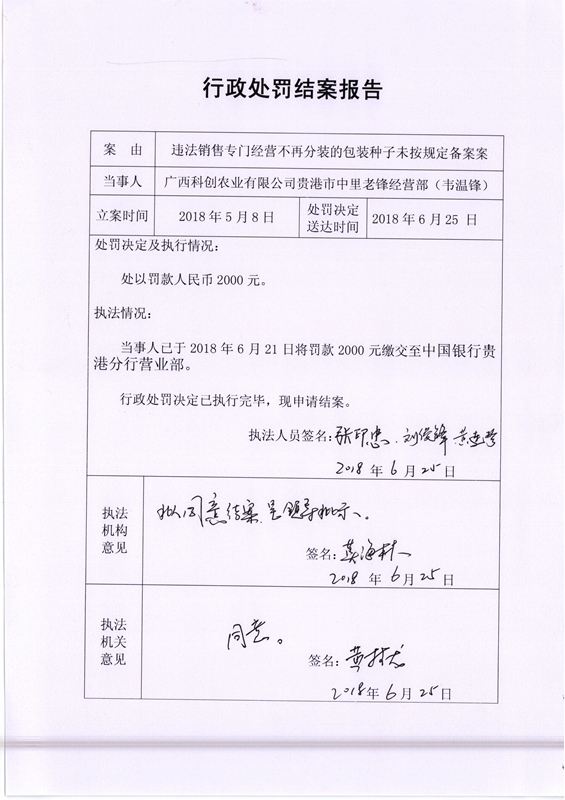 行政处罚结案报告
案 由 违法销售专门经营不再分装的包装种子未按规定备案案
当事人 广西科创农业有限公司贵港市中里老锋经营部（韦温锋）
立案时间 2018年5月8日 处罚决定送达时间 2018年6月25 日
处罚决定及执行情况：
处以罚款人民币2000元。
执法情况：
当事人已于2018年6月21日将罚款2000元缴交至中国银行贵
港分行营业部。
行政处罚决定已执行完毕，现申请结案。
执法人员签名：
2018 年 6 月 25 日
执法机构意见 拟同意结案，呈领导批示。
签名：
2018 年 6 月 25 日
执法机关意见 同意。
签名：
2018 年 6 月 25 日